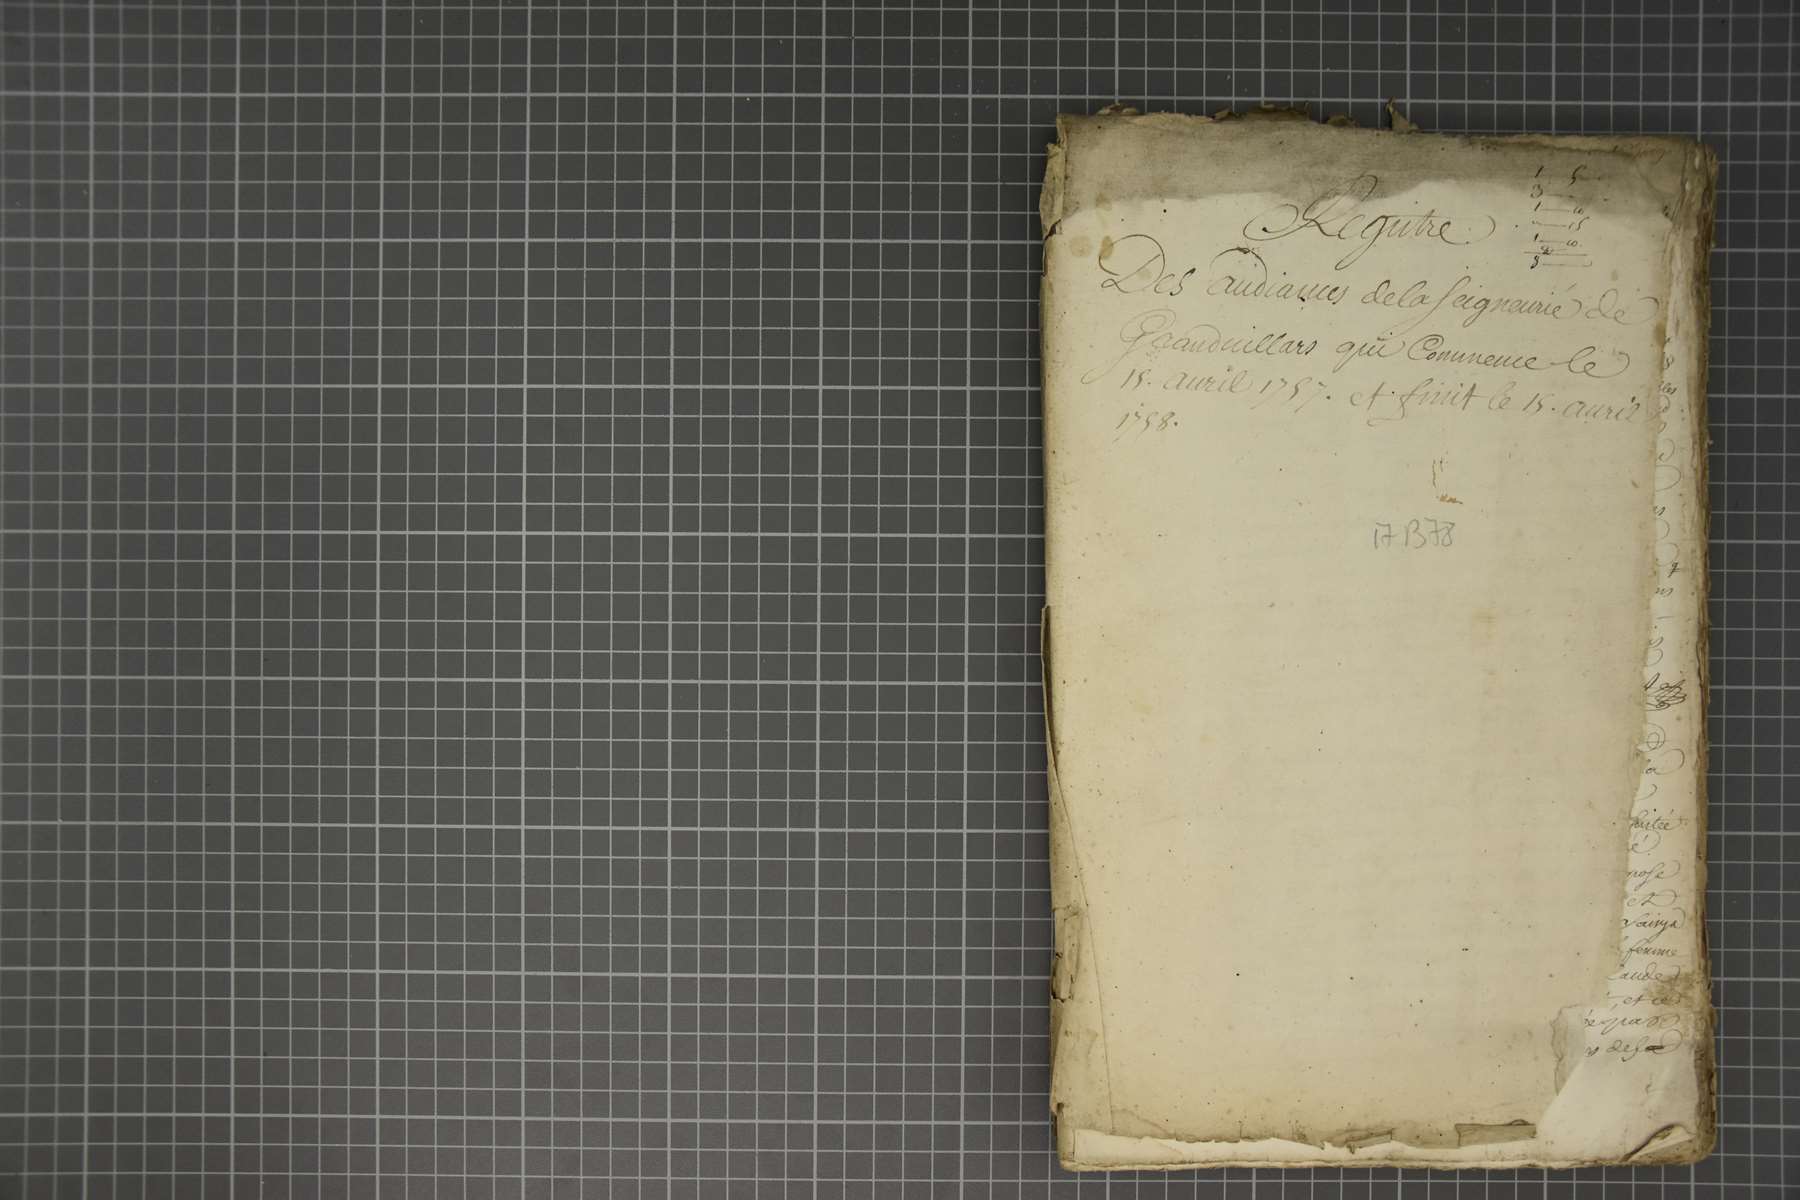 Registre.
Des audiances de la seigneurie de
Grandvillars qui Commence le
15. avril 1757. et finit le 15. avril
1758.
17 B 78
femme